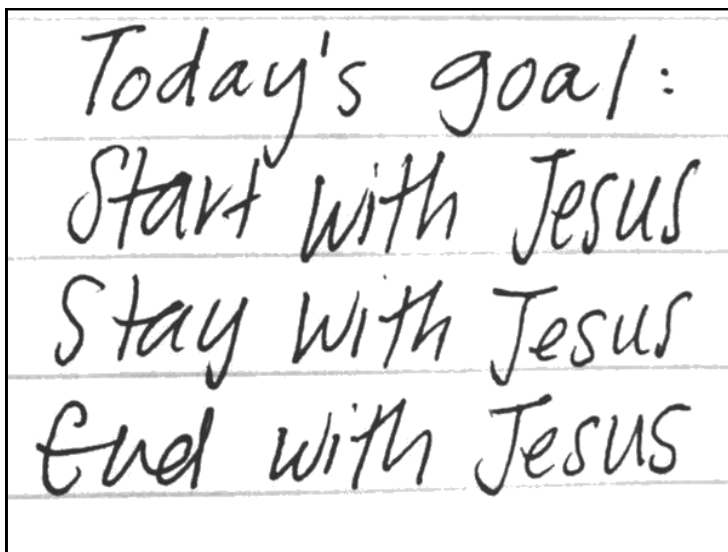 Today's goal:
Start with Jesus
Stay with Jesus
End with Jesus